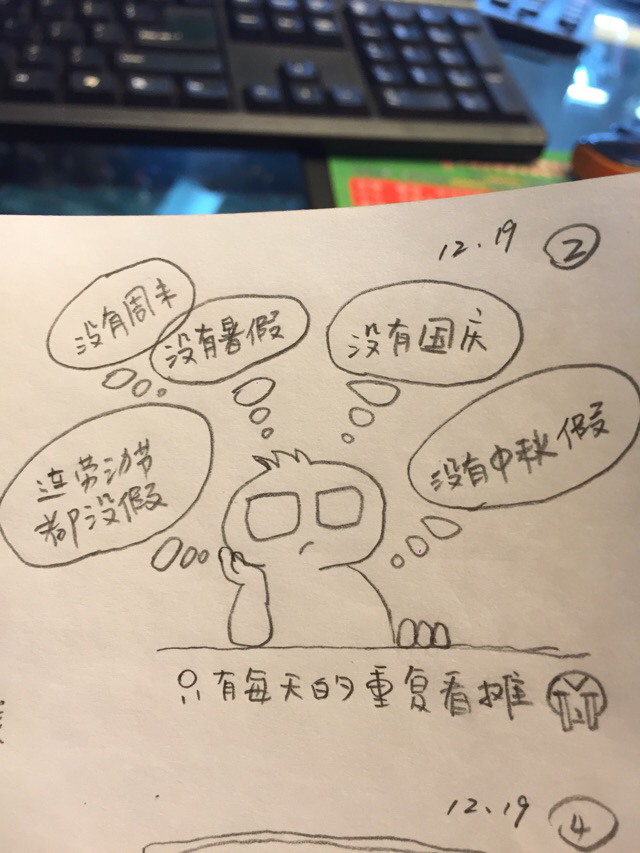 12.19 ②
没有周末
没有暑假
没有国庆
连劳动节
都没假
没有中秋假
只有每天的重复看摊
12.19 ④